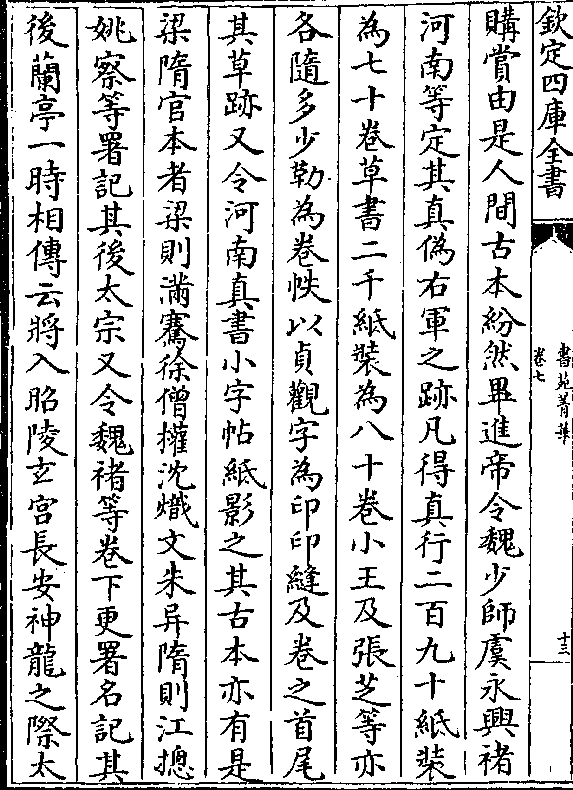 欽定四庫全書
書苑菁華
卷七
十三
購賞由是人間古本紛然畢進帝令魏少師虞永興禇
河南等定其真偽右軍之跡凡得真行二百九十紙裝
為七十卷草書二千紙裝為八十卷小王及張芝等亦
各隨多少勒為卷帙以貞觀字為印印縫及卷之首尾
其草跡又令河南真書小字帖紙影之其古本亦有是
梁隋官本者梁則滿騫徐僧權沈熾文朱异隋則江摠
姚察等署記其後太宗又令魏禇等卷下更署名記其
後蘭亭一時相傳云將入昭陵玄宫長安神龍之際太